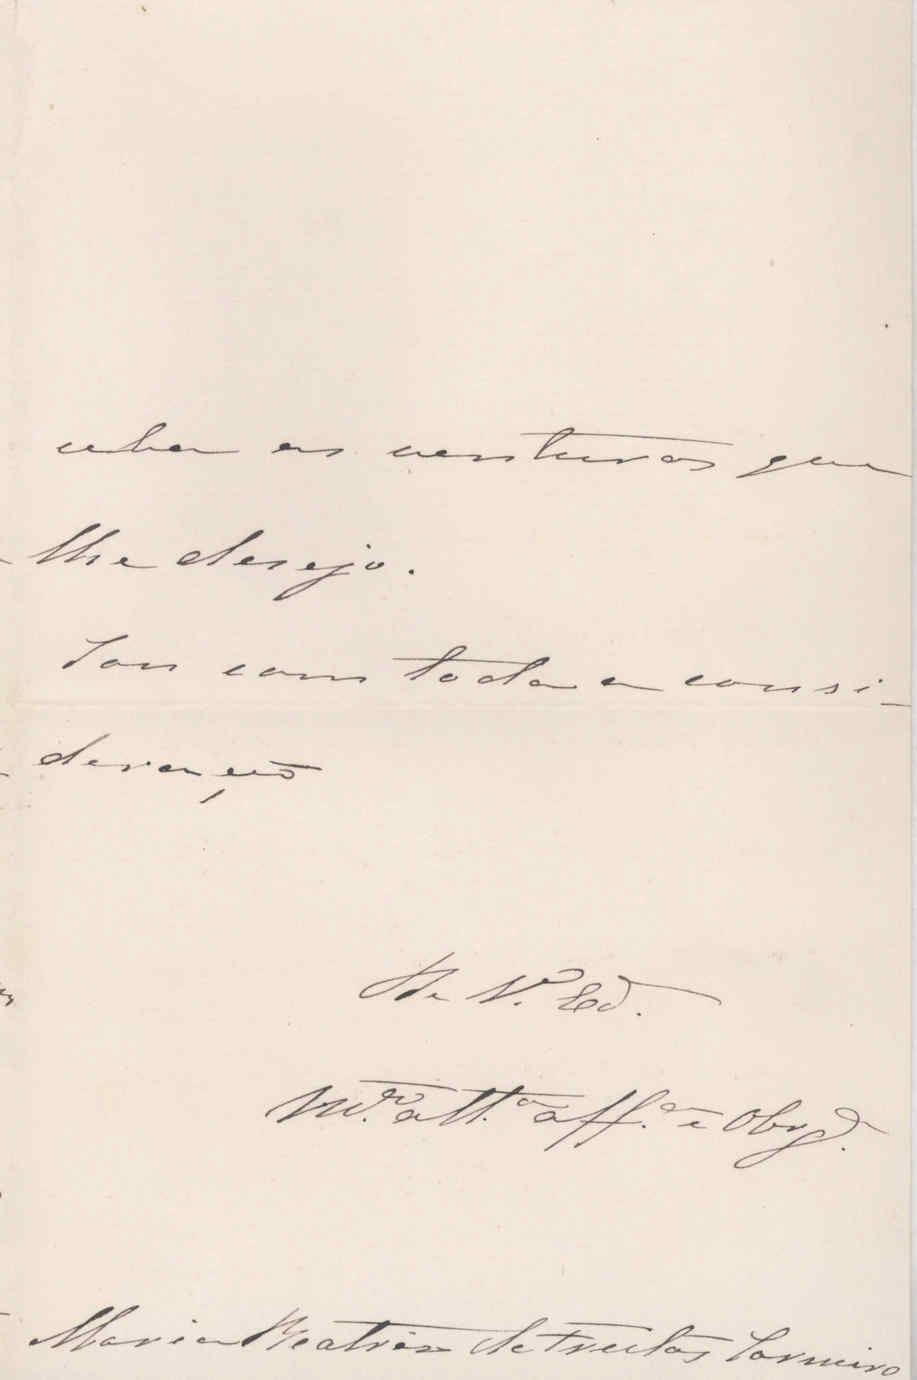 nha as venturas que
lhe desejo.
Sou com toda a consi-
deração
De V.ª Ex.ª
M.to att.a aff.a e Obrg.da
Maria Beatriz de Freitas